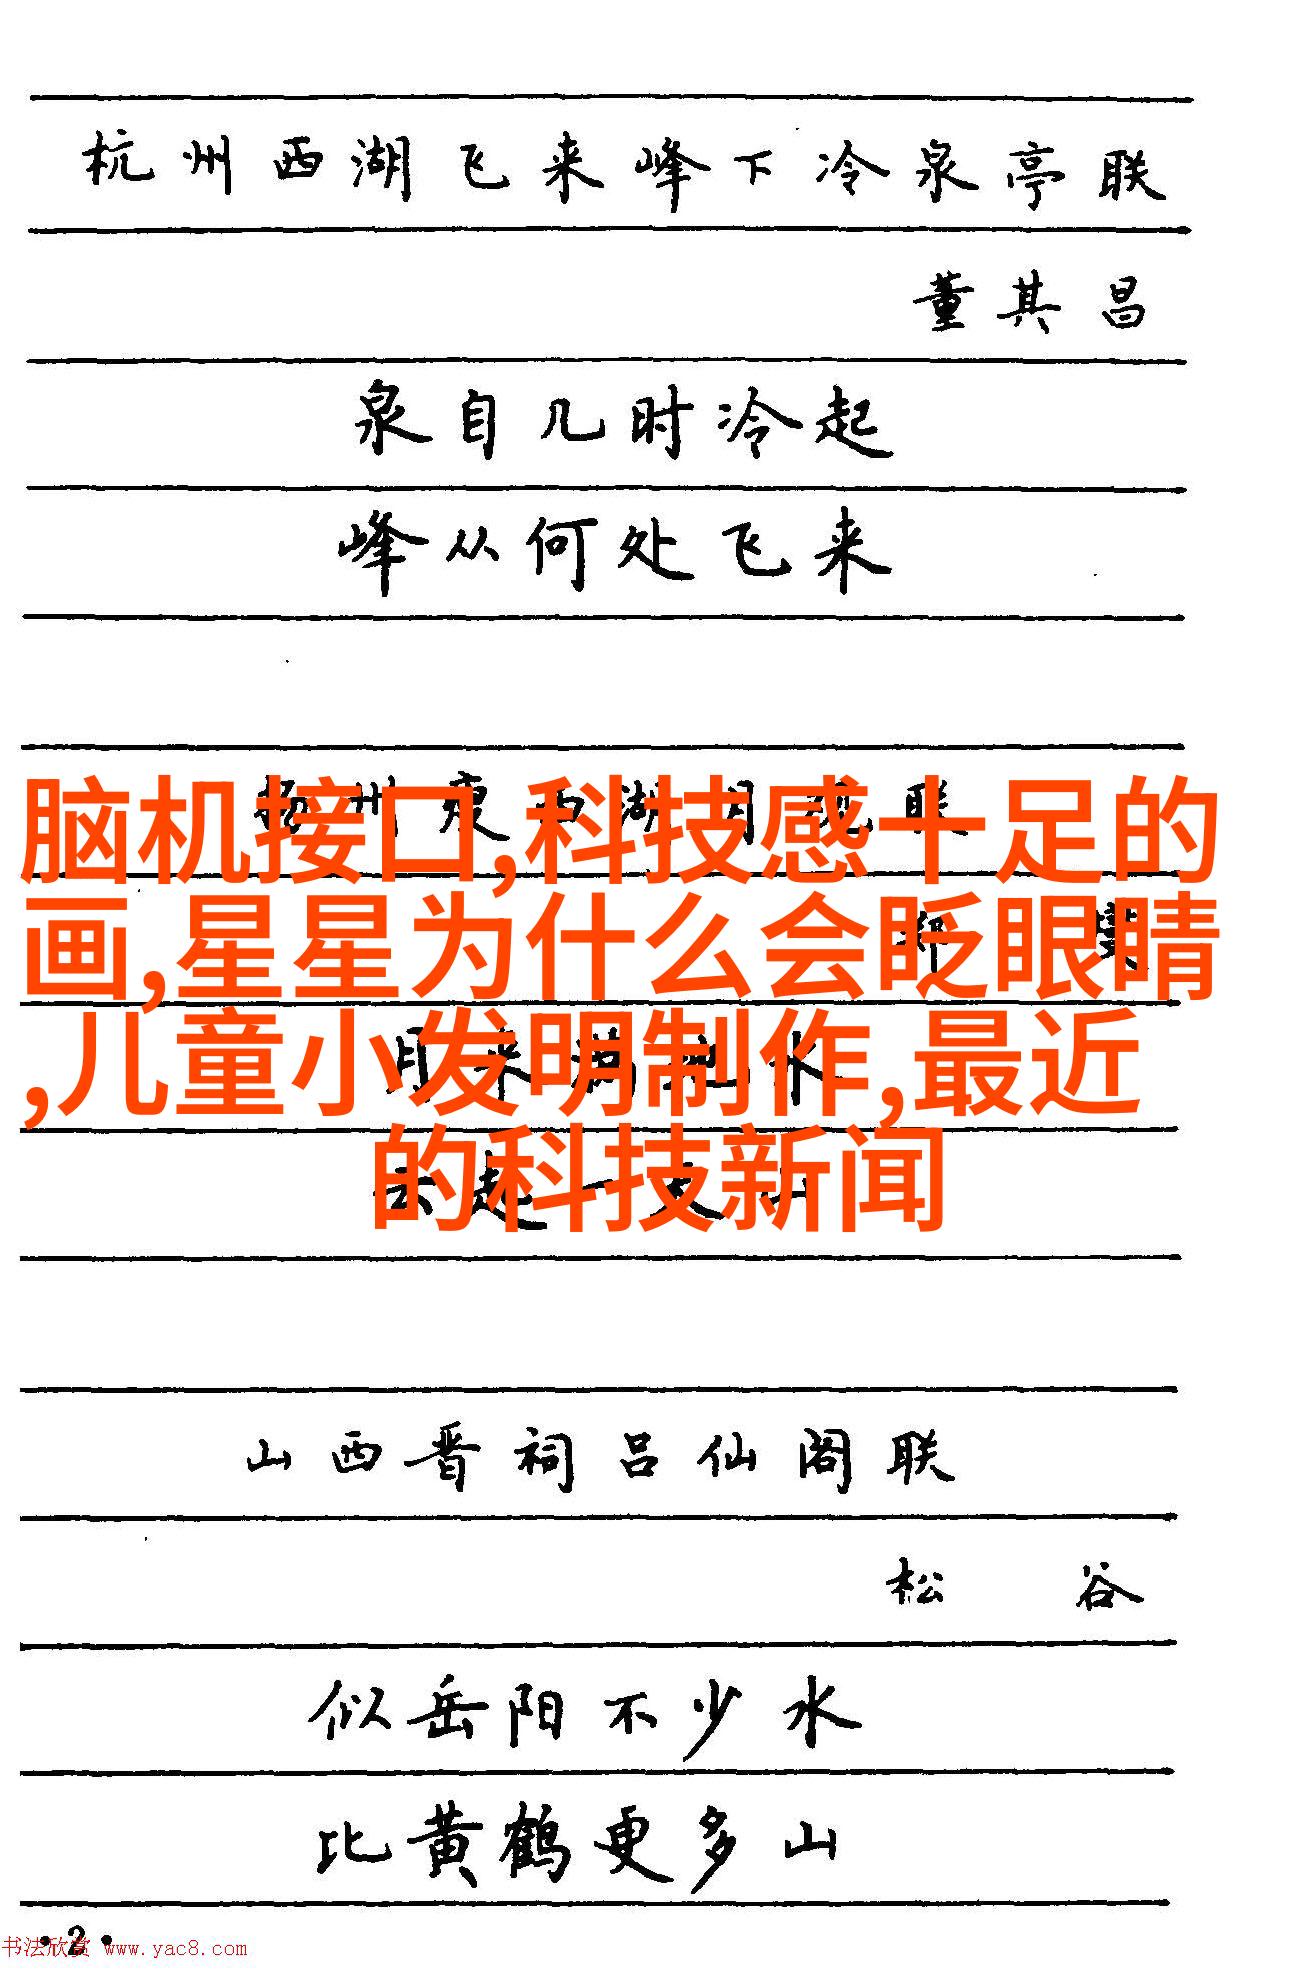 杭州西湖飞来峰下冷泉亭联
董其昌
泉自几时冷起
峰从何处飞来
扬州瘦西湖月观联
脑机接口,科技感十足的
郑燮
画,星星为什么会眨眼睛
月来满地水
,儿童小发明制作,最近
云起一天山
的科技新闻
山西晋祠吕仙阁联
松谷
似岳阳不少水
比黄鹤更多山
·2·
书法欣赏 www.yac8.com